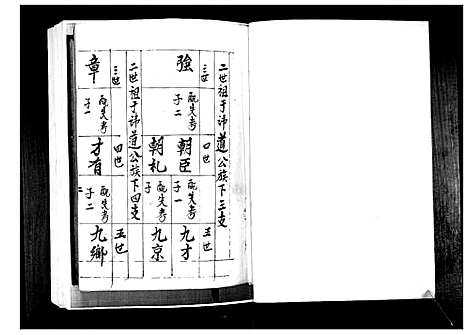 二世祖于沛道公族下三支
三世 四世 五世
強 朝臣 九才
配失考 配失考
子二 子一
朝札 九京
子
二世祖于沛道公族下四支
三世 四世 五世
章 才有 九鄉
配失考 配失考
子一 子二